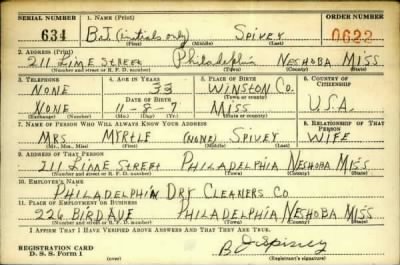 SERIAL NUMBER 1. NAME (Print) ORDER NUMBER
634 B.J (initials only) SPIVEY 0622
(First) (Middle) (Last)
2. ADDRESS (Print)
211 LIME STREET Philadelphia NESHOBA MISS
(Number and street or R. F. D. number) (Town) (County) (State)
3. TELEPHONE 4. AGE IN YEARS 5. PLACE OF BIRTH 6. COUNTRY OF CITIZENSHIP
NONE 33 WINSTON CO.
DATE OF BIRTH (Town or county)
NONE 11-8-7 MISS U.S.A.
(Exchange) (Number) (Mo.) (Day) (Yr.) (State or country)
7. NAME OF PERSON WHO WILL ALWAYS KNOW YOUR ADDRESS 8. RELATIONSHIP OF THAT PERSON
MRS MYRTLE (NONE) SPIVEY WIFE
(Mr., Mrs., Miss) (First) (Middle) (Last)
9. ADDRESS OF THAT PERSON
211 LIME STREET PHILADELPHIA NESHOBA MISS
(Number and street or R. F. D. number) (Town) (County) (State)
10. EMPLOYER'S NAME
PHILADELPHIA DRY CLEANERS CO
11. PLACE OF EMPLOYMENT OR BUSINESS
226 BIRD AVE PHILADELPHIA NESHOBA MISS
(Number and street or R. F. D. number) (Town) (County) (State)
I AFFIRM THAT I HAVE VERIFIED ABOVE ANSWERS AND THAT THEY ARE TRUE.
B J Spivey
REGISTRATION CARD
D. S. S. Form 1 (over) (Registrant's signature)